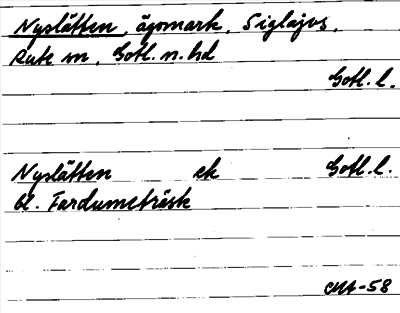 Nyslätten, ägomark, Siglajvs,
Rute sn, Gotl. n. hd
Gotl. l.
Nyslätten ek Gotl. l.
bl. Fardumeträsk
-58